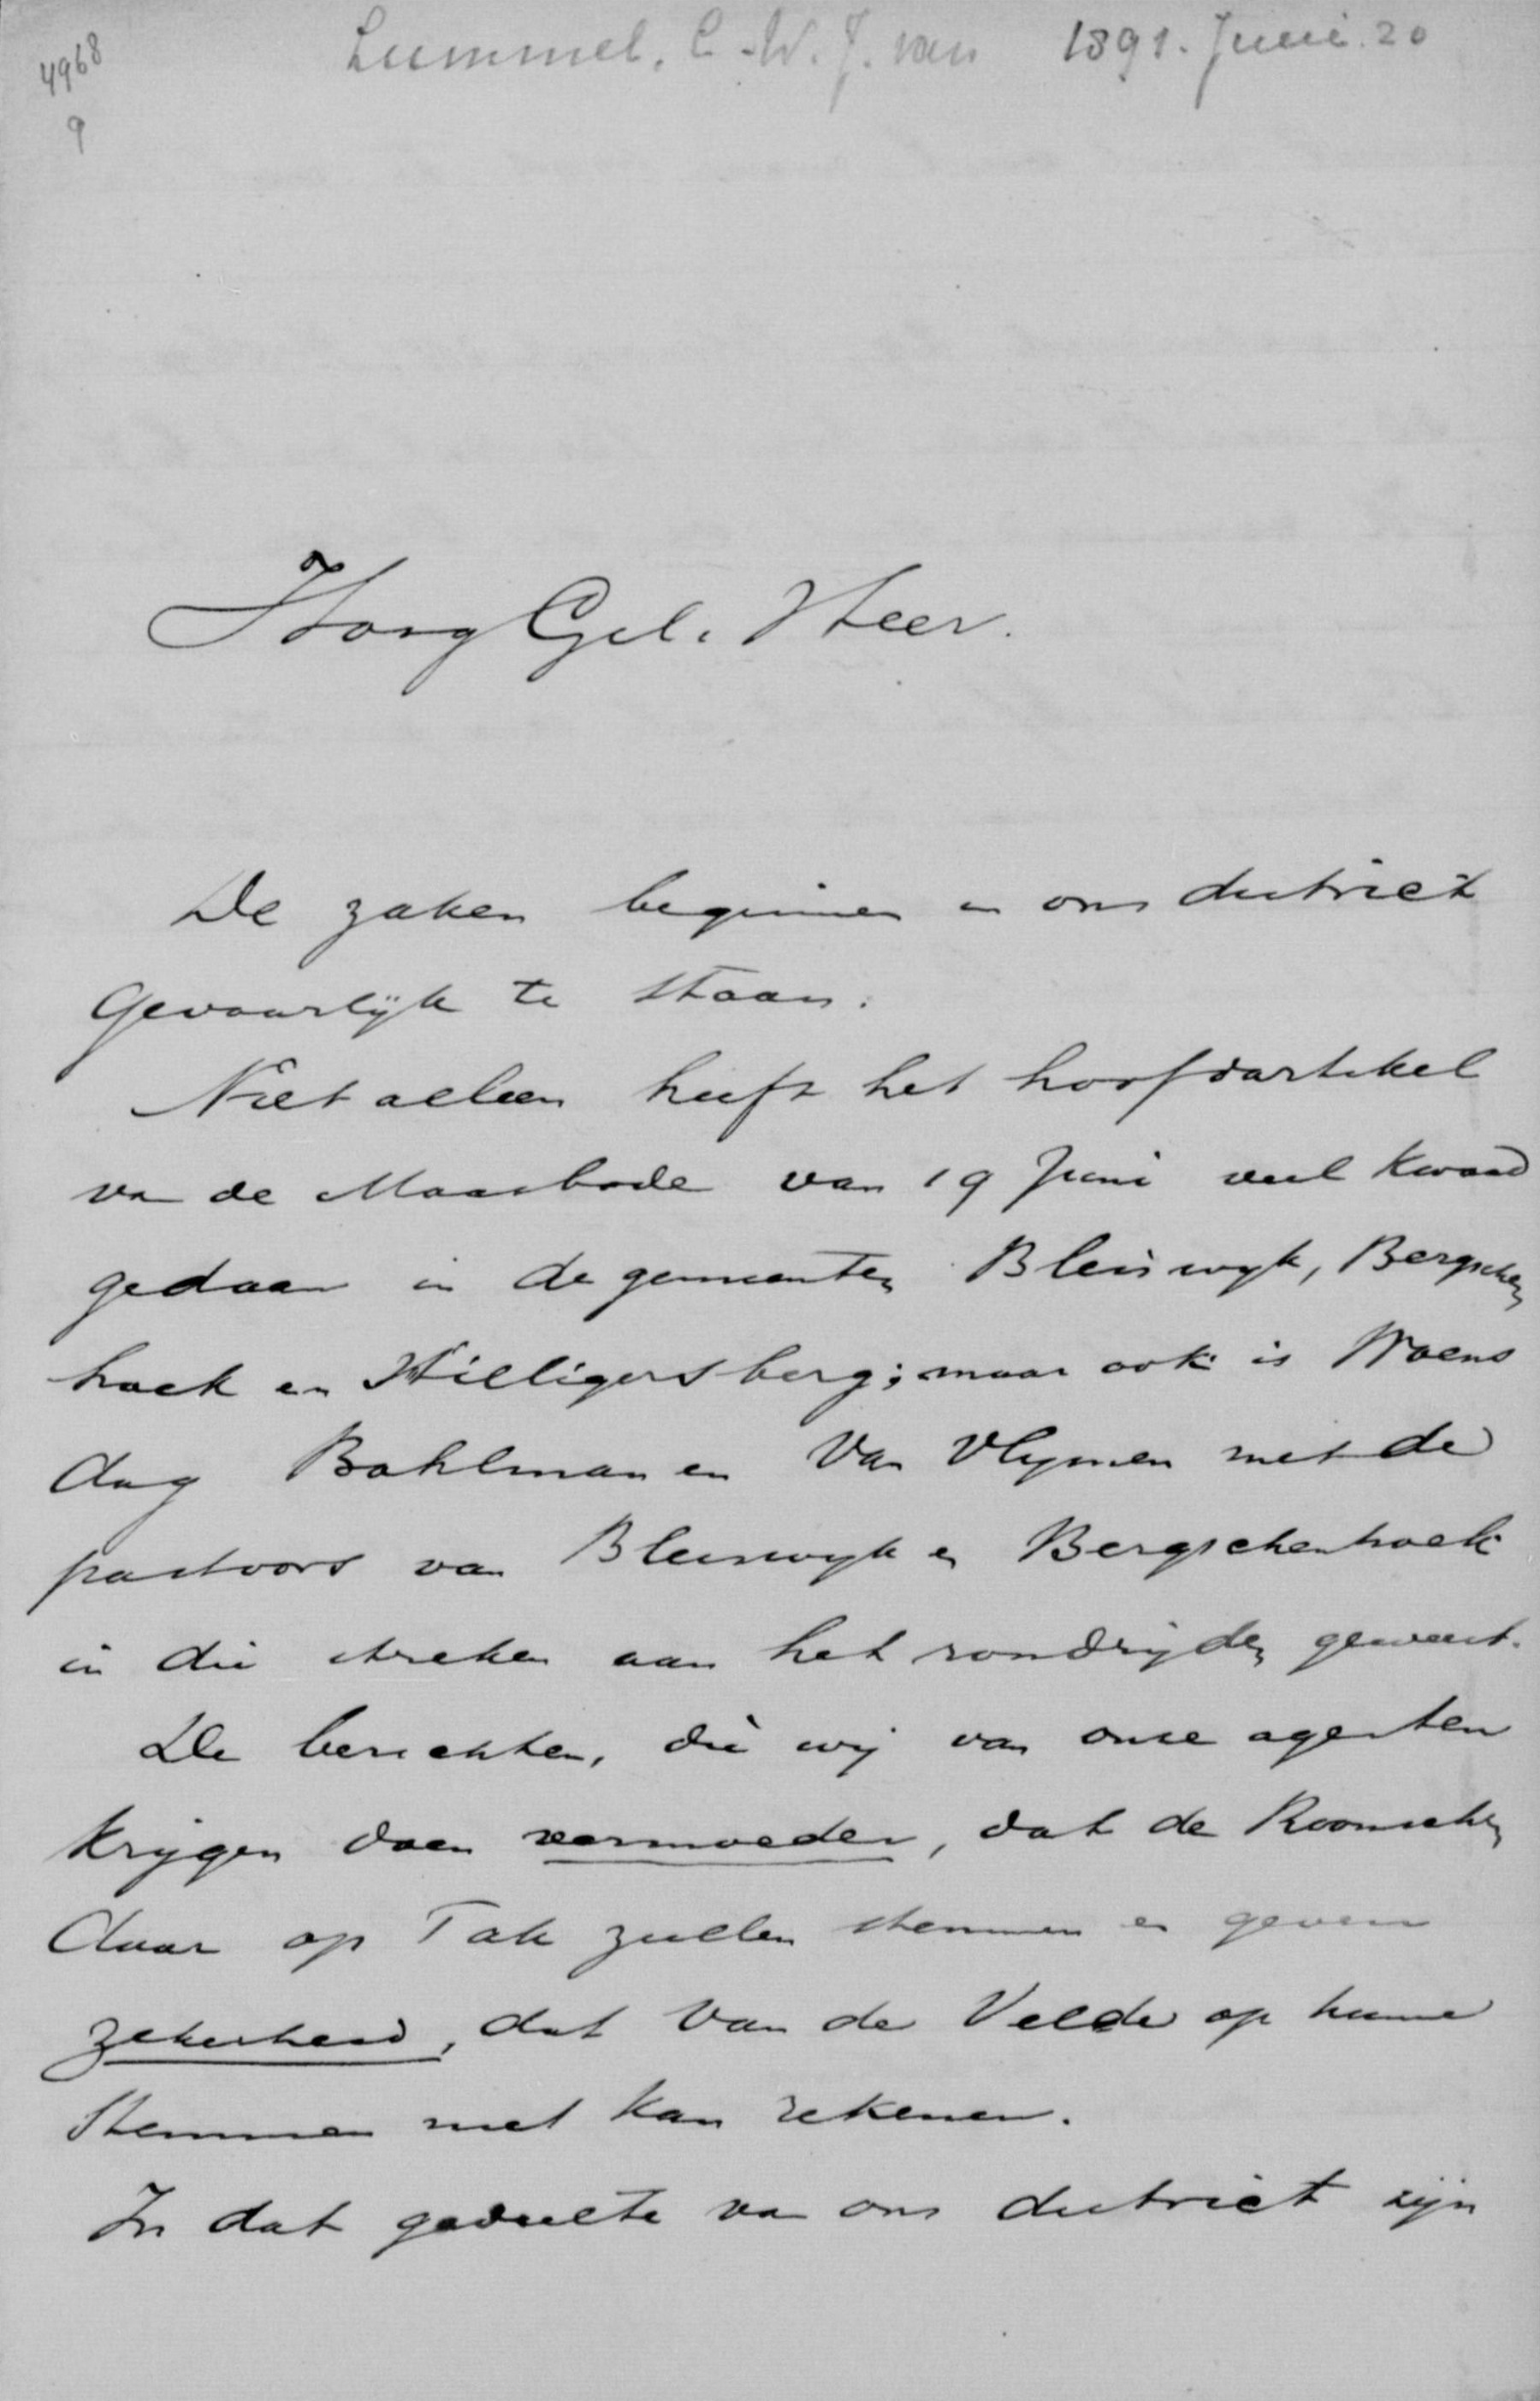 4968
9
Lummel, C.W.J. van 1891. Juni. 20
HoogGel. Heer.
De zaken beginnen in ons district
gevaarlijk te staan.
Niet alleen heeft het hoofdartikel
van de Maasbode van 19 Juni veel kwaad
gedaan in de gemeenten Bleiswyk, Bergschen
hoek en Hilligersberg; maar ook is Woens
dag Bahlman en Van Vlymen met de
pastoors van Bleiswyk en Bergschenhoek
in die streken aan het rondrijden geweest.
De berichten, die wij van onze agenten
krijgen doen vermoeden, dat de Roomschen
daar op Tak zullen stemmen en geven
zekerheid, dat Van de Velde op hunne
stemmen niet kan rekenen.
In dat gedeelte van ons district zijn